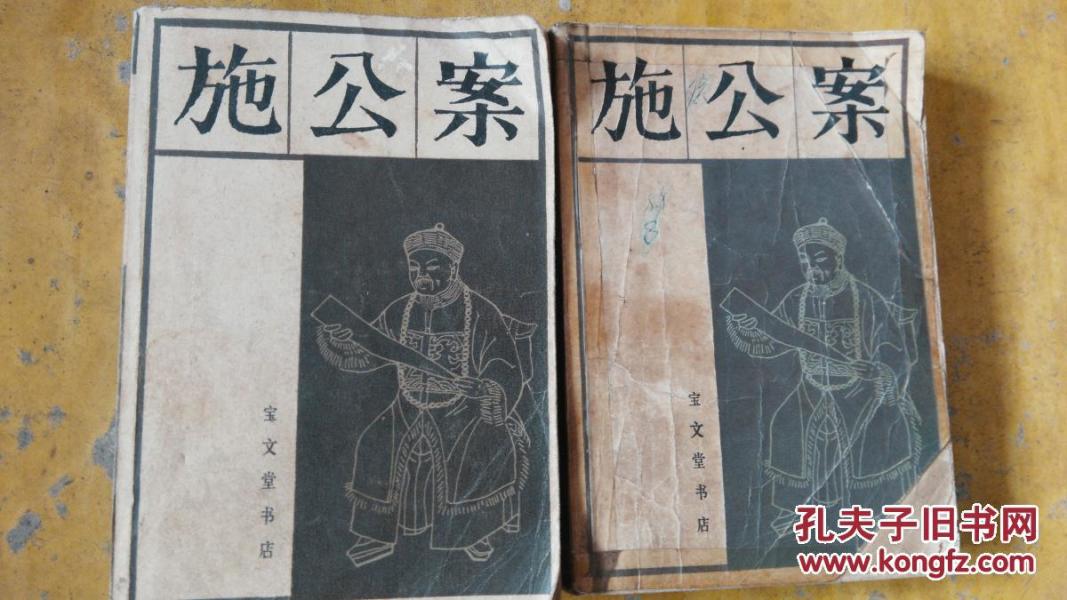 施公案
宝文堂书店
施公案
宝文堂书店
孔夫子旧书网
www.kongfz.com